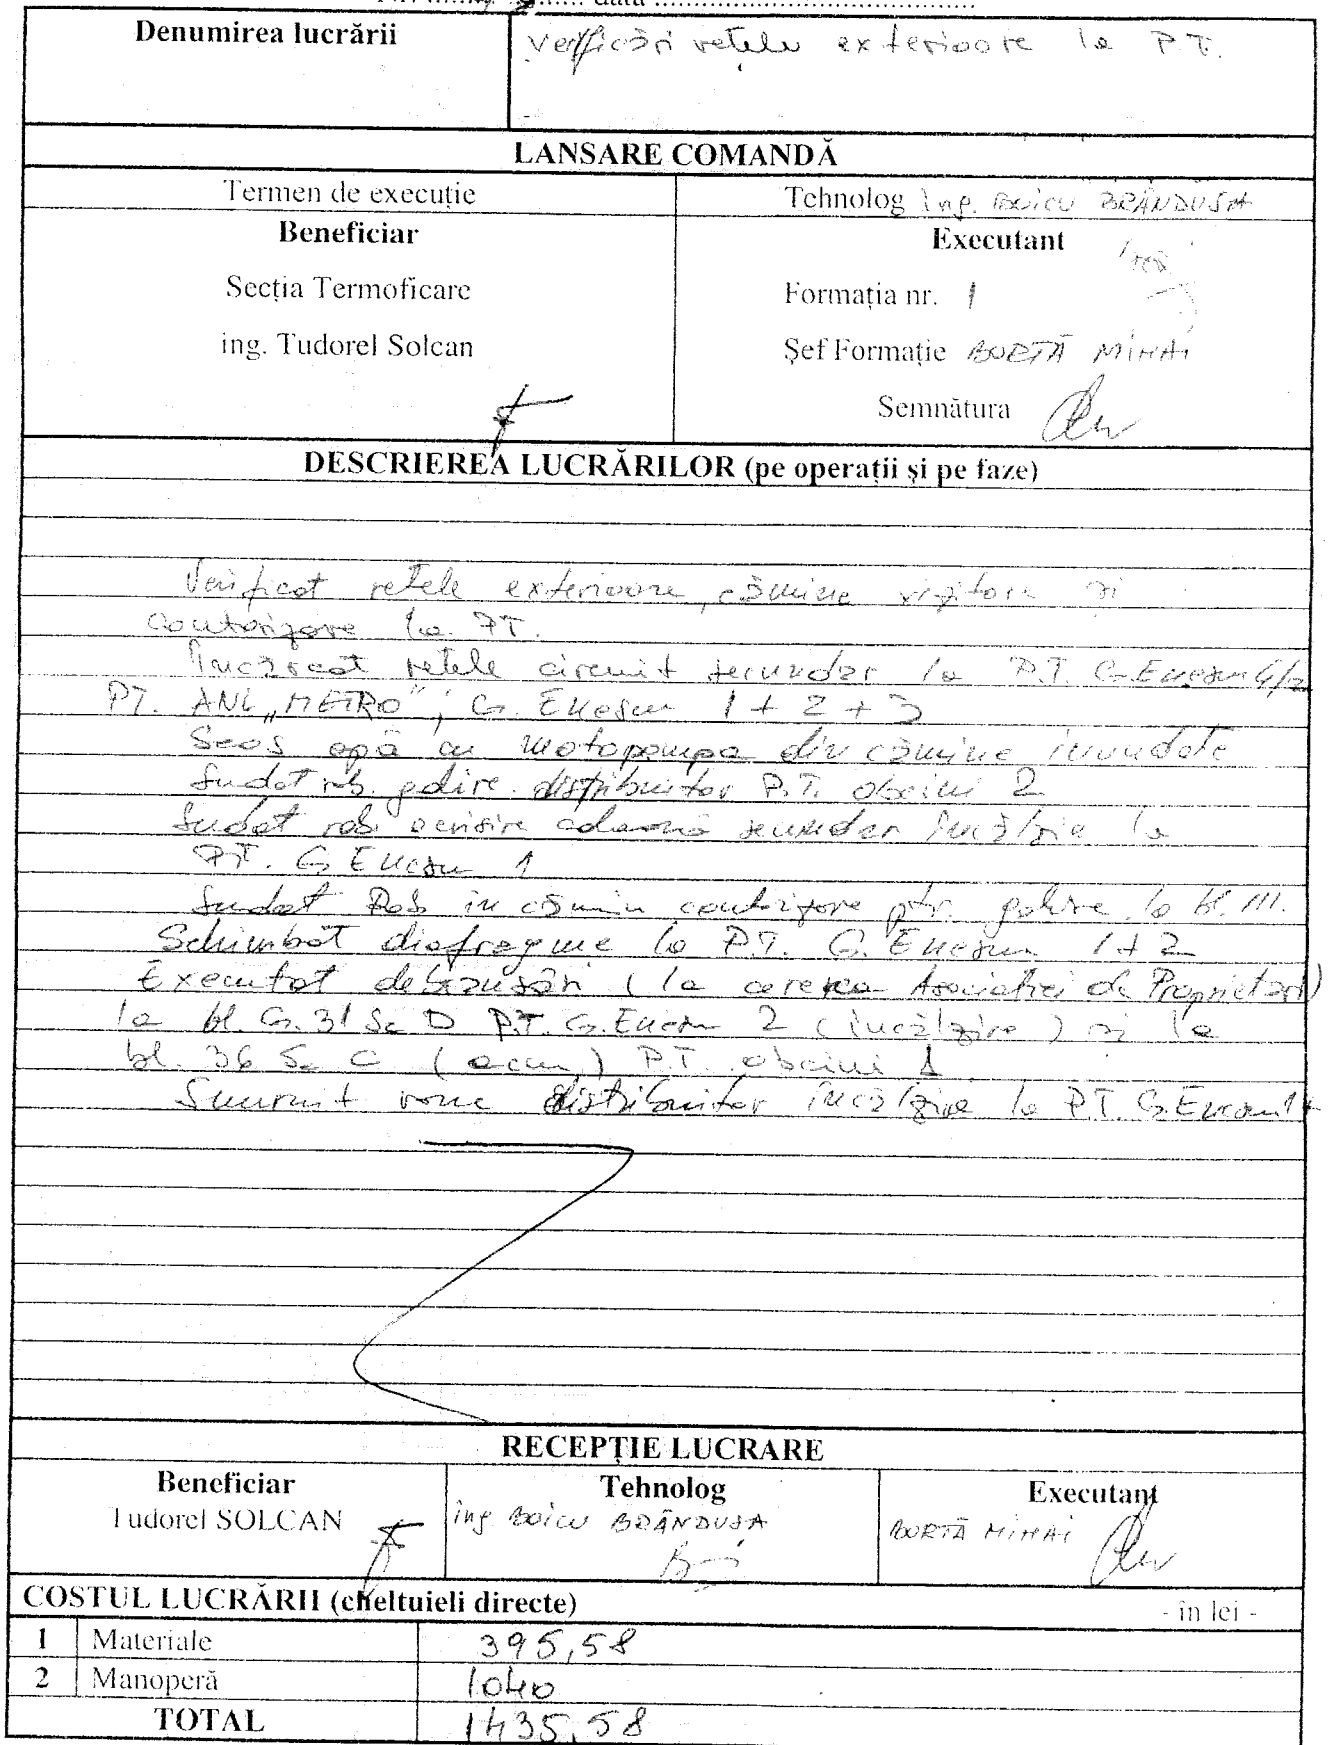 data
Denumirea lucrării
Verificări rețele exterioare la P.T.
LANSARE COMANDĂ
Termen de execuție
Tehnolog ing. BOICU BRÂNDUȘA
Beneficiar
Executant
Secția Termoficare
Formația nr. 1
ing. Tudorel Solcan
Șef Formație BORTĂ MIHAI
Semnătura
DESCRIEREA LUCRĂRILOR (pe operații și pe faze)
Verificat rețele exterioare, cămine vizitare și
contorizare la PT.
Încărcat rețele circuit secundar la P.T. G. Enescu 4/2
PT. ANL „METRO", G. Enescu 1 + 2 + 3
Scos apă cu motopompa din cămine inundate
Sudat rob. golire distribuitor P.T. Obcini 2
Sudat rob. aerisire coloană secundar încălzire la
P.T. G. Enescu 1
Sudat Rob in cămin contorizare ptr. golire la bl. 111.
Schimbat diafragme la P.T. G. Enescu 1+2
Executat debranșări (la cererea Asociației de Proprietari)
la bl. G. 31 Sc D P.T. G. Enescu 2 (încălzire) și la
bl. 36 Sc C (acm) P.T. Obcini 1
distribuitor încălzire la P.T. G. Enescu 1
RECEPȚIE LUCRARE
Beneficiar
Tehnolog
Executant
Tudorel SOLCAN
ing BOICU BRÂNDUȘA
BORTĂ MIHAI
COSTUL LUCRĂRII (cheltuieli directe)
- în lei -
1 Materiale 395,58
2 Manoperă 1040
TOTAL 1435,58